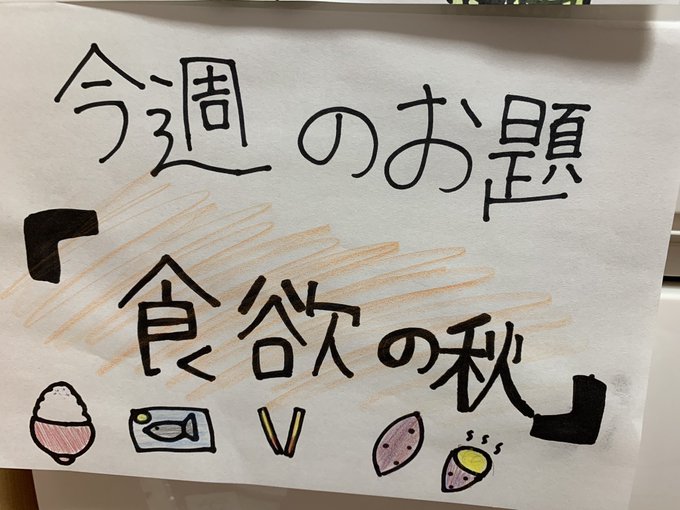 今週のお題
『食欲の秋』